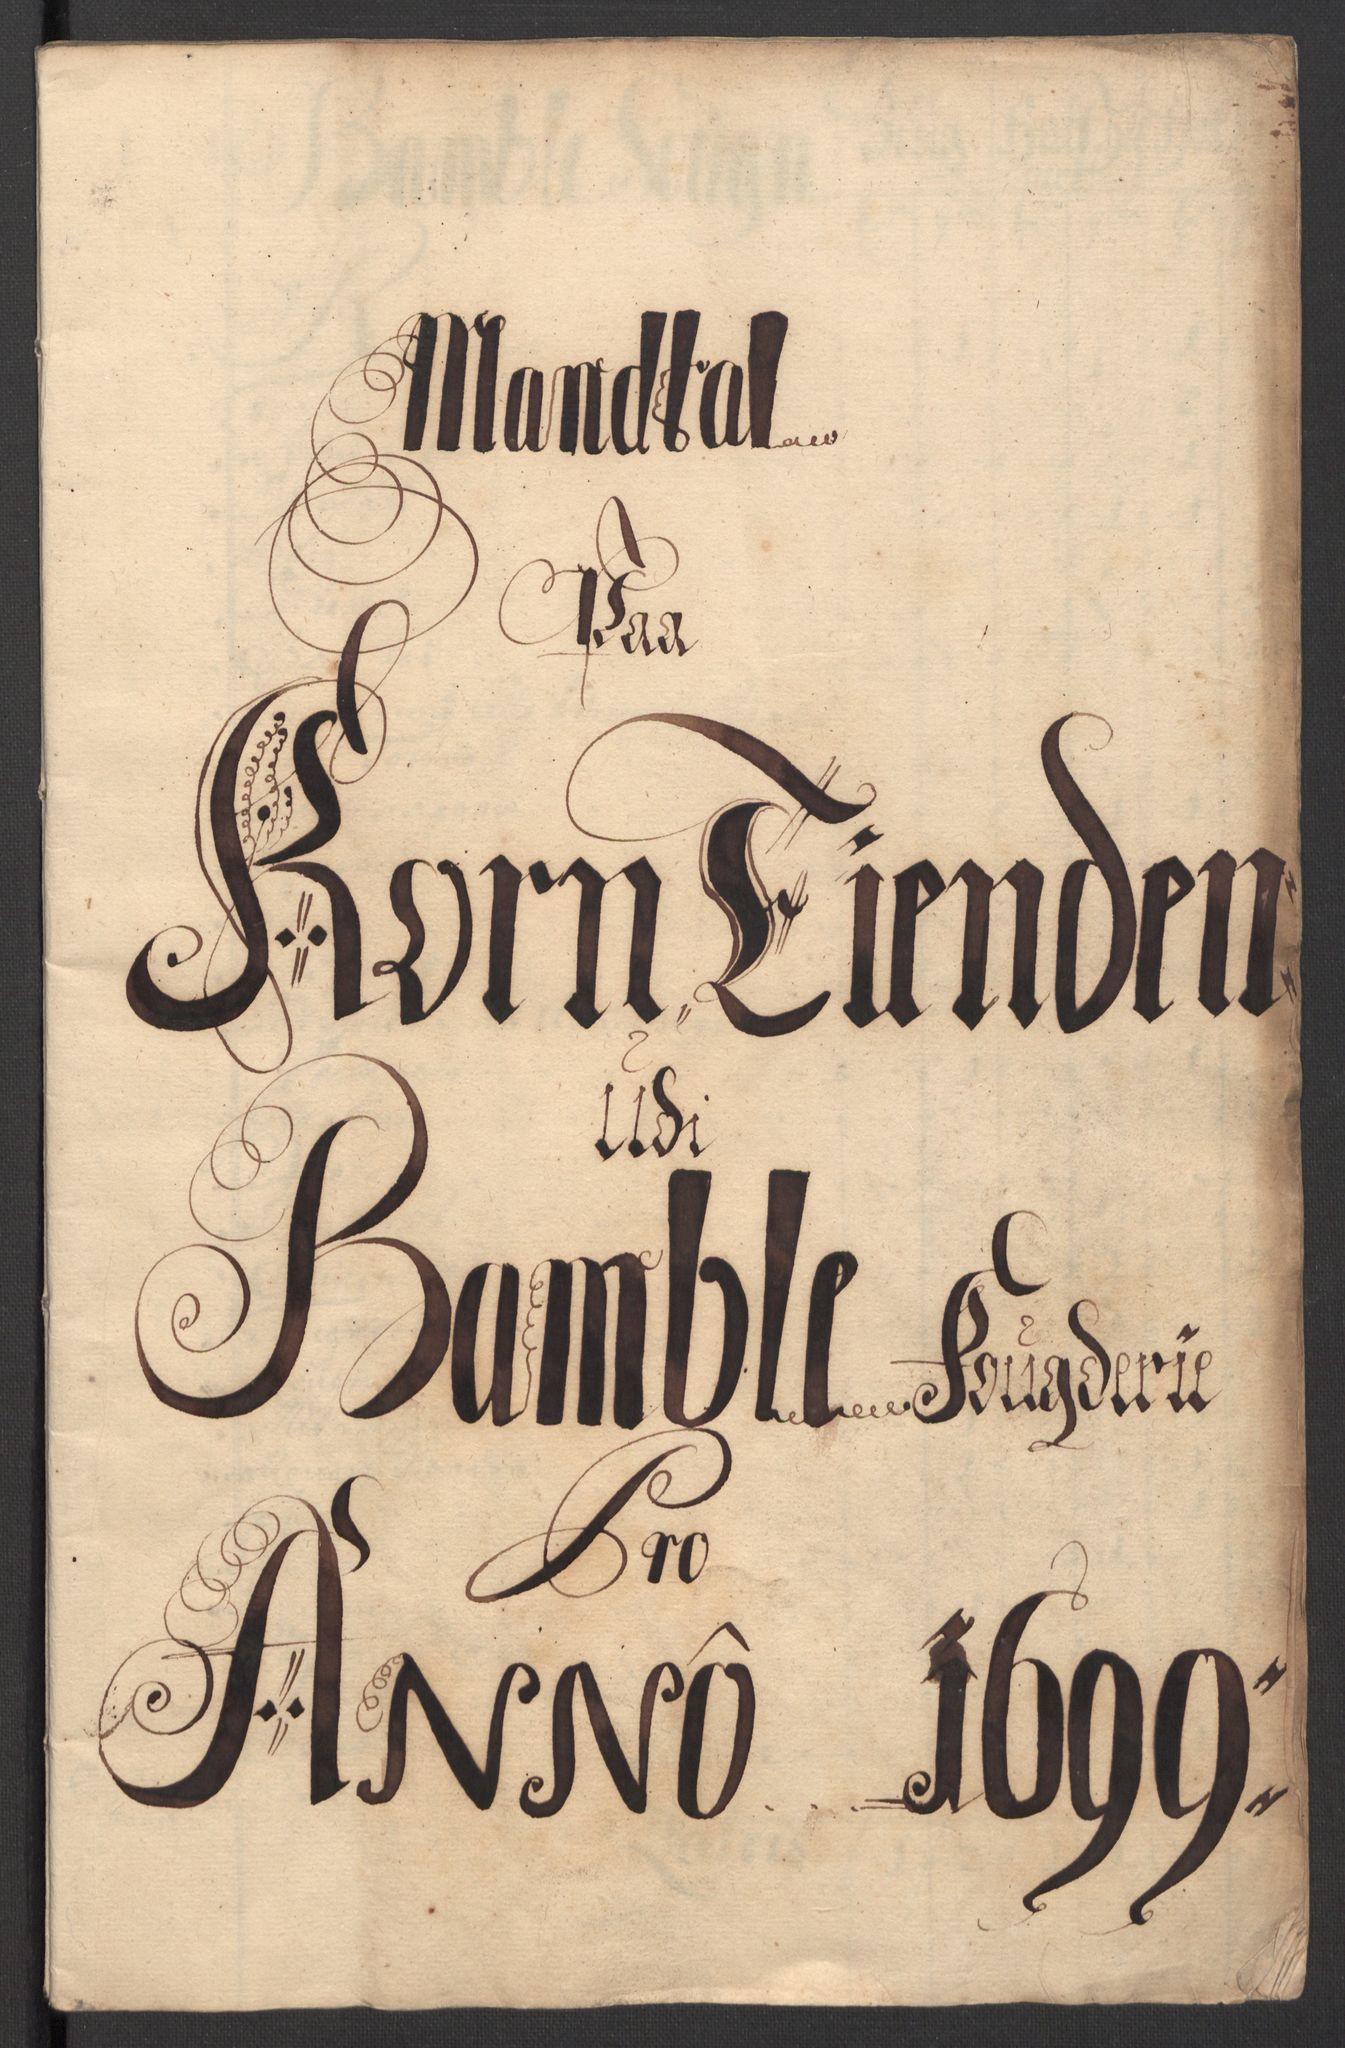 Mandtal
Paa
Korn Tienden
udi
Bamble Fougderie
Pro
Annô 1699